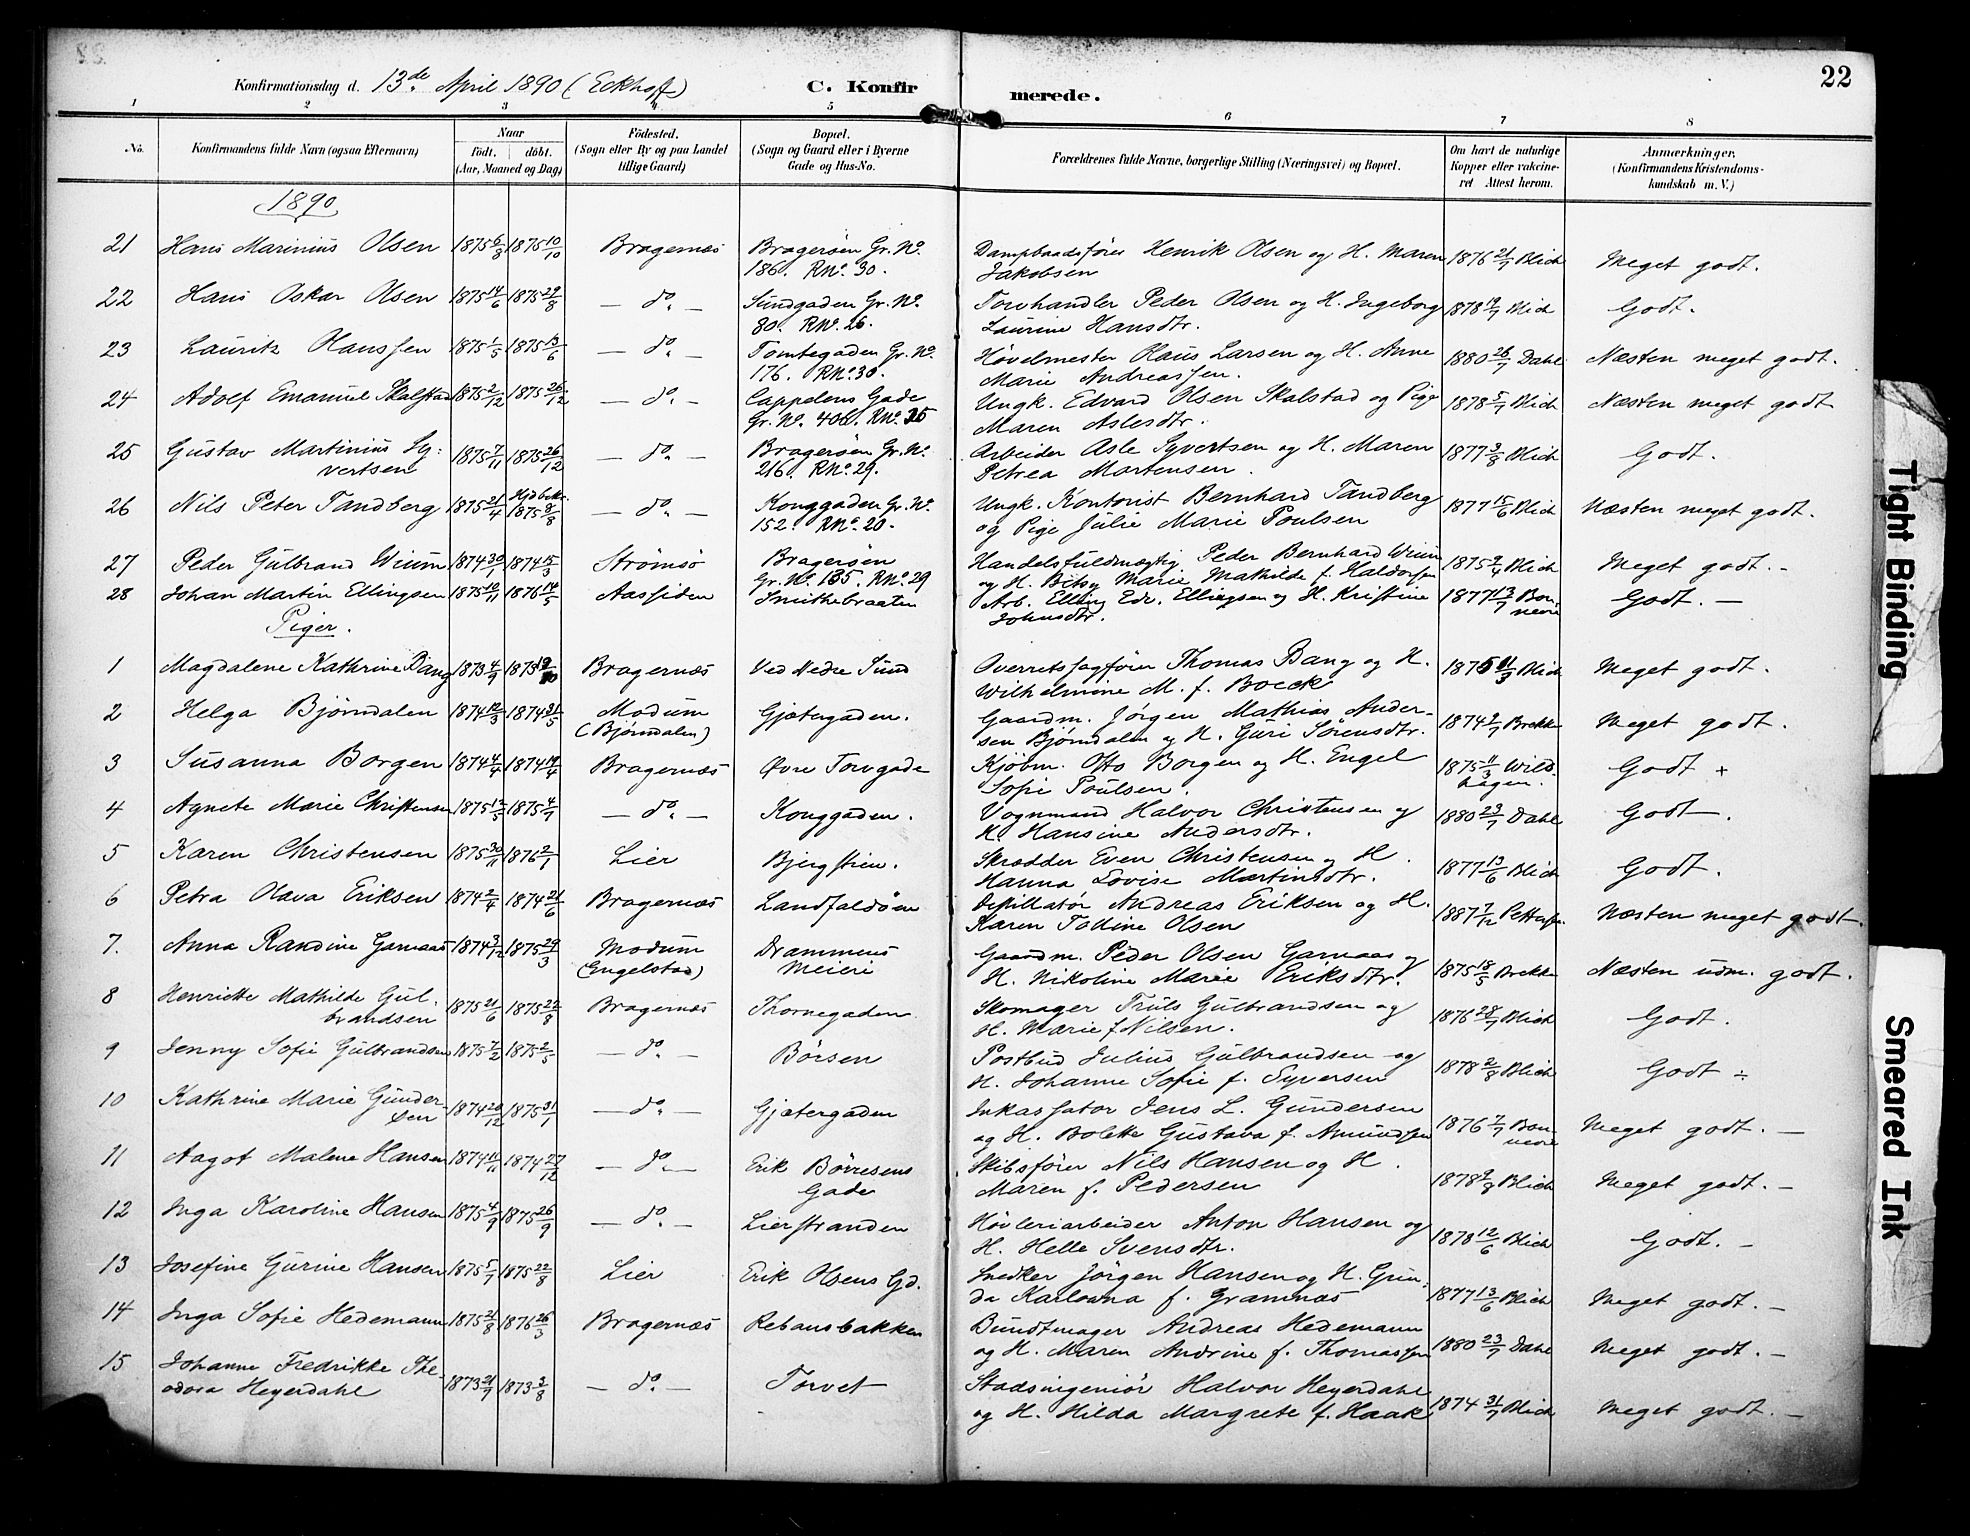 22
Konfirmationsdag d. 13de April 1890 (Eckhoff)
C. Konfirmerede.
1 2 3 4 5 6 7 8
No.
Konfirmandens fulde Navn (ogsaa Efternavn)
Naar
født. døbt.
(Aar, Maaned og Dag)
Fødested.
(Sogn eller By og paa Landet
tillige Gaard)
Bopæl.
(Sogn og Gaard eller i Byerne
Gade og Hus-No.
Forældrenes fulde Navne, borgerlige Stilling (Næringsvei) og Bopæl.
Om havt de naturlige
Kopper eller vakcine-
ret Attest herom.
Anmærkninger.
(Konfirmandens Kristendoms-
kundskab m. V.)
1890
21 Hans Marinius Olsen 1875 6/8 1875 10/10 Bragernæs Bragerøen Gr. No. Dampbaadsfører Henrik Olsen og H. Maren 1876 21/7 Blich Meget godt.
186. RNo. 30. Jakobsen
22 Hans Oskar Olsen 1875 14/6 1875 29/8 — do. — Sundgaden Gr. No. Torvhandler Peder Olsen og H. Ingeborg 1878 19/7 Blich Godt.
80. RNo. 26. Laurine Hansdtr.
23 Lauritz Olaussen 1875 1/5 1875 13/6 — do. — Tomtegaden Gr. No. Høvelmester Olaus Larsen og H. Anne 1880 26/7 Dahl Næsten meget godt.
176. RNo. 30. Marie Andreassen.
24 Adolf Emanuel Skalstad 1875 2/12 1875 26/12 — do. — Cappelens Gade Ungk. Edvard Olsen Skalstad og Pige 1878 5/7 Blich Næsten meget godt
Gr. No. 406. RNo. 25 Maren Aslesdtr.
25 Gustav Martinius Sy- 1875 7/11 1875 26/12 — do. — Bragerøen Gr. No. Arbeider Asle Syvertsen og H. Maren 1877 3/8 Blich Godt.
vertsen 216. RNo. 29. Petrea Martensen.
26 Nils Peter Tandberg 1875 21/4 Hjdbekr. 1875 8/8 — do. — Konggaden Gr. No. Ungk. Kontorist Bernhard Tandberg 1877 15/6 Blich Næsten meget godt.
152. RNo. 20. og Pige Julie Marie Poulsen
27 Peder Gulbrand Wium 1874 30/1 1874 15/3 Strømsø Bragerøen Handelsfuldmægtig Peder Bernhard Wium 1875 9/4 Blich Meget godt. -
Gr. No. 135. RNo. 29 og H. Betsy Marie Mathilde f. Haldorsen
28 Johan Martin Ellingsen 1875 10/11 1876 14/5 Aassiden Smithebraaten Arb. Elling Edv. Ellingsen og H. Kristine 1877 13/7 Bonnevie Godt. —
Johnsdtr.
Piger.
1 Magdalene Kathrine Bang 1873 4/9 1873 19/10 Bragernæs Ved Nedre Sund Overretssagfører Thomas Bang og H. 1875 11/3 Blich Meget godt.
Wilhelmine M. f. Boeck
2 Helga Bjørndalen 1874 12/3 1874 31/5 Modum Gjetergaden. Gaardm. Jørgen Mathias Ander- 1874 2/7 Brekke Meget godt.
(Bjørndalen) sen Bjørndalen og H. Guri Sørensdtr.
3 Susanna Borgen 1874 4/4 1874 19/4 Bragernæs Øvre Torvgade Kjøbm. Otto Borgen og H. Engel 1875 11/3 Wildhagen. Godt +
Sofie Poulsen.
4 Agnete Marie Christensen 1875 12/5 1875 4/7 — do. — Konggaden. Vognmand Halvor Christensen og 1880 23/7 Dahl Godt.
H. Hansine Andersdtr.
5 Karen Christensen 1875 30/11 1876 2/1 Lier Bjergstien. Skrædder Even Christensen og H. 1877 13/6 Blich Godt.
Hanna Lovise Martinsdtr.
6 Petra Olava Eriksen 1874 2/4 1874 21/6 Bragernæs Landfaldøen Destillatør Andreas Eriksen og H. 1887 7/12 Pettersen Næsten meget godt.
Karen Tolline Olsen
7. Anna Randine Garnaas 1874 3/12 1875 29/3 Modum Drammens Gaardm. Peder Olsen Garnaas og 1875 18/5 Brekke Næsten udm. godt.
(Engelstad) Meieri H. Nikoline Marie Eriksdtr.
8 Henriette Mathilde Gul- 1875 21/6 1875 22/8 Bragernæs Thornegaden Skomager Truls Gulbrandsen og 1876 28/7 Blich Godt.
brandsen H. Marie f. Nilsen.
9 Jenny Sofie Gulbrandsen 1875 7/2 1875 2/5 — do. — Børsen Postbud Julius Gulbrandsen og 1878 2/8 Blich Godt ÷
H. Johanne Sofie f. Syversen
10 Kathrine Marie Gunder- 1874 20/12 1875 31/1 — do. — Gjetergaden Inkassator Jens L. Gundersen 1876 7/7 Bonnevie Meget godt. —
sen og H. Bolette Gustava f. Amundsen
11 Aagot Malene Hansen 1874 11/11 1874 27/12 — do. — Erik Børresens Skibsfører Nils Hansen og H. 1878 9/8 Blich Meget godt. -
Gade Maren f. Pedersen
12 Inga Karoline Hansen 1875 4/9 1875 26/9 — do. — Lierstranden Høvleriarbeider Anton Hansen og 1878 12/6 Blich Godt. -
H. Helle Svensdtr.
13 Josefine Gurine Hansen 1875 5/7 1875 22/8 Lier Erik Olsens Gd. Snedker Jørgen Hansen og H. Gun- 1877 13/6 Blich Meget godt. -
da Karloana f. Gramnæs
14 Inga Sofie Hedemann 1875 21/8 1876 26/3 Bragernæs Rebansbakken Bundtmager Andreas Hedemann 1880 23/7 Dahl Meget godt. -
og H. Maren Andrine f. Thomassen
15 Johanne Fredrikke The- 1873 21/7 1873 3/8 — do. — Torvet Stadsingeniør Halvor Heyerdahl 1874 31/7 Blich Meget godt. -
odora Heyerdahl og H. Hilda Margrete f. Haak
Tight Binding
Smeared Ink